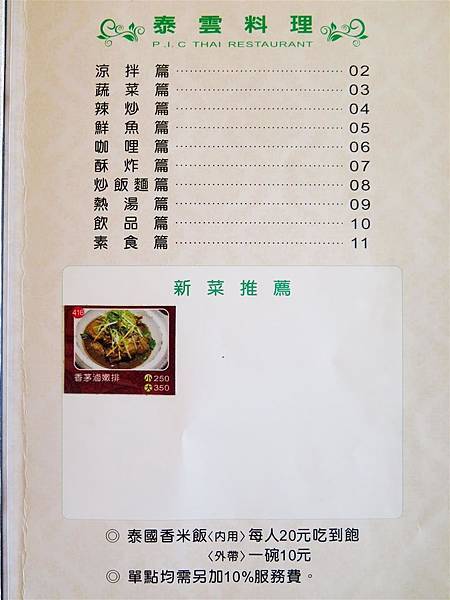 泰雲料理
P.I.C THAI RESTAURANT
涼拌篇 02
蔬菜篇 03
辣炒篇 04
鮮魚篇 05
咖哩篇 06
酥炸篇 07
炒飯麵篇 08
熱湯篇 09
飲品篇 10
素食篇 11
新菜推薦
416
香茅滷嫩排 小250
大350
◎ 泰國香米飯〈內用〉每人20元吃到飽
〈外帶〉一碗10元
◎ 單點均需另加10%服務費。